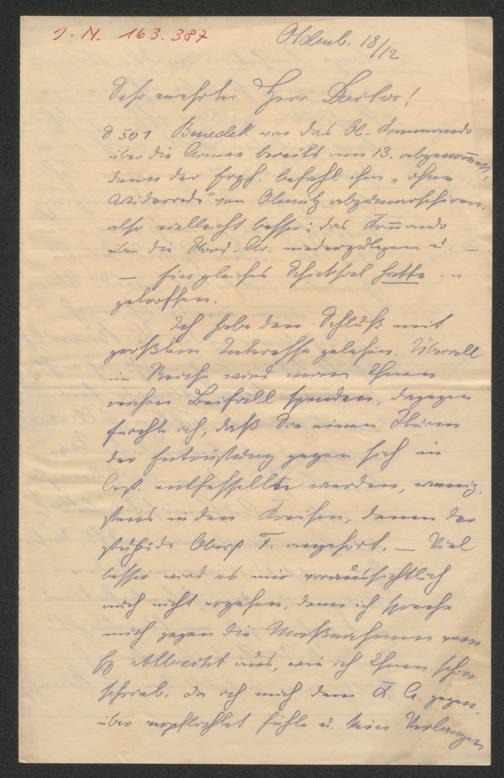 J. N. 163.387
Oldenb. 18/12
Sehr verehrter Herr Doctor!
S. 501 Benedek war das Ob. Kommando
über die Armee bereits am 13. abgenommen,
denn der Erzh. befahl ihm „ohne
Widerrede" von Olmütz abzumarschiren.
also vielleicht besser: das Kommando
über die Nord-Ar. niederzulegen u. —
— Ein gleiches Schicksal hatte
getroffen.
Ich habe den Schluß mit
größtem Interesse gelesen. Überall
im Reich wird man Ihnen
wahren Beifall spenden, dagegen
fürchte ich, daß Sie einen Sturm
der Entrüstung gegen sich in
Öst. entfesseln werden, wenig-
stens in den Kreisen, denen der
stupide Oberst T. angehört. — Viel
besser wird es mir voraussichtlich
auch nicht ergehen, denn ich spreche
mich gegen die Maßnahmen von
Eh. Albrecht aus, wie ich Ihnen schon
schrieb. Da ich mich dem K. A. gegen-
über verpflichtet fühle u. kein Verlangen